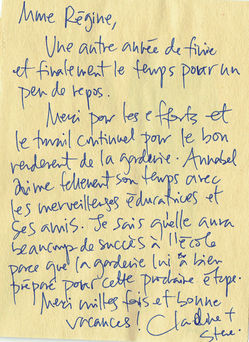 Mme Régine,
Une autre année de finie
et finalement le temps pour un
peu de repos.
Merci pour les efforts et
le travail continuel pour le bon
rendement de la garderie. Annabel
aime tellement son temps avec
les merveilleuses éducatrices et
ses amis. Je sais qu'elle aura
beaucoup de succès à l'école
parce que la garderie lui a bien
préparé pour cette prochaine étape.
Merci milles fois et bonne
vacances! Claudine +
Steve.